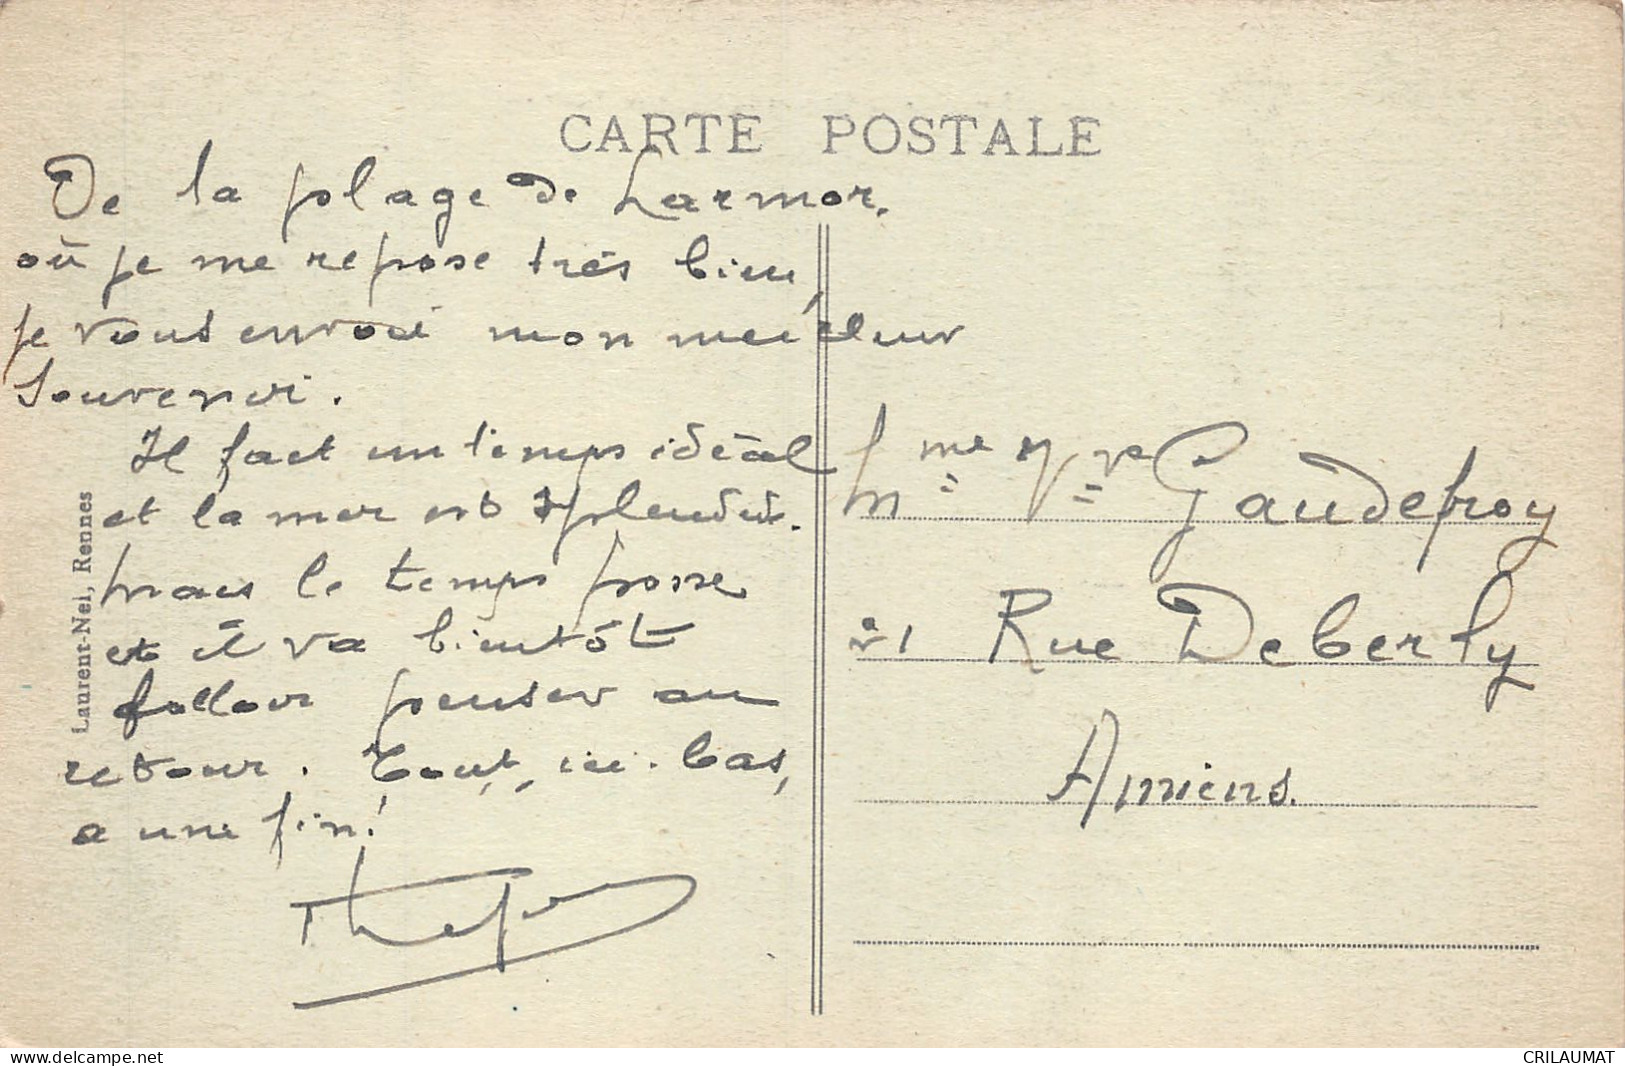 CARTE POSTALE
De la plage de Larmor,
où je me repose très bien,
je vous envoie mon meilleur
souvenir.
Il fait un temps idéal
et la mer est splendide.
Mais le temps passe
et il va bientôt
falloir penser au
retour. Tout, ici-bas,
a une fin!
Mme Vve Gaudefroy
21 Rue Deberly
Amiens.
Laurent-Nel, Rennes
www.delcampe.net
CRILAUMAT